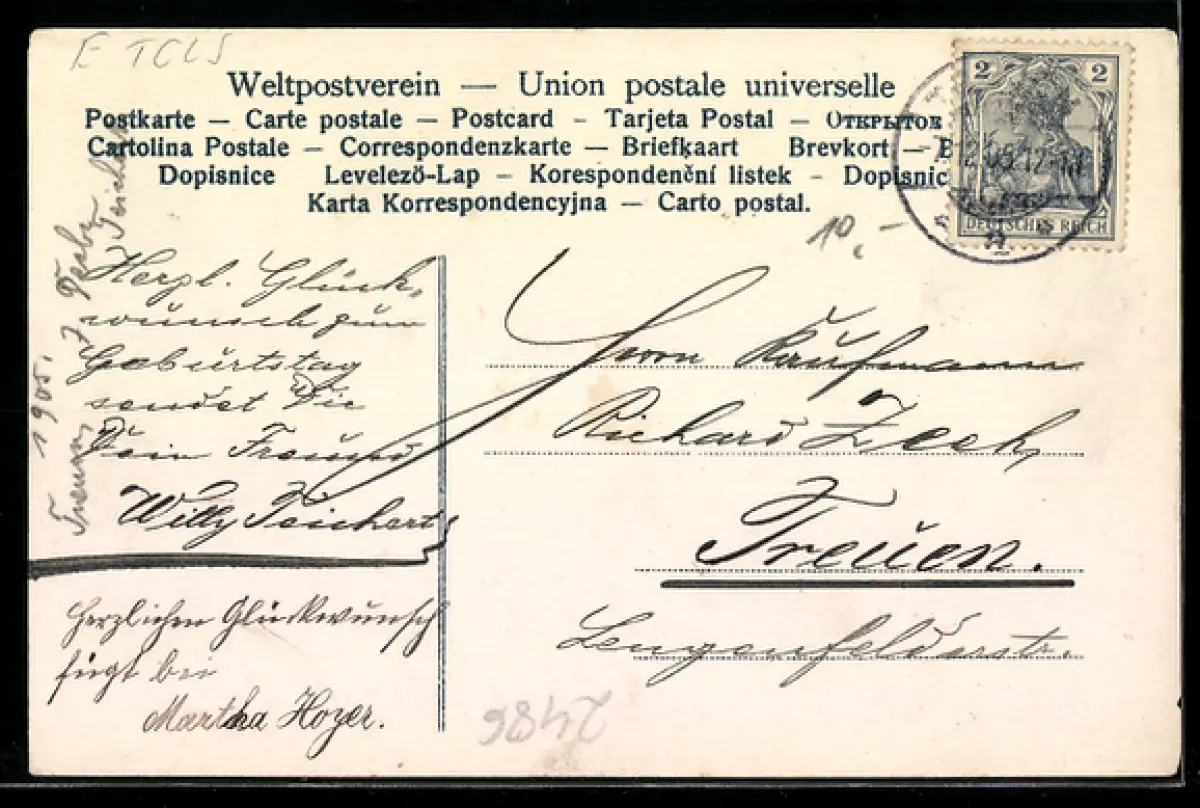 E TCLS
Weltpostverein — Union postale universelle
Postkarte — Carte postale — Postcard - Tarjeta Postal — Открытов
Cartolina Postale — Correspondenzkarte — Briefkaart Brevkort — B
Dopisnice Levelező-Lap - Korespondenční listek - Dopisnic
Karta Korrespondencyjna — Carto postal.
2 2
DEUTSCHES REICH
10,-
Treuen, 1905.
Herzl. Glück-
wunsch zum
Geburtstag
sendet Die
Dein Freund
Willy Teichert
Herzlichen Glückwunsch
fügt bei
Martha Hoyer.
Herrn Kaufmann
Richard Zeeh,
Treuen.
Lengenfelderstr.
2486